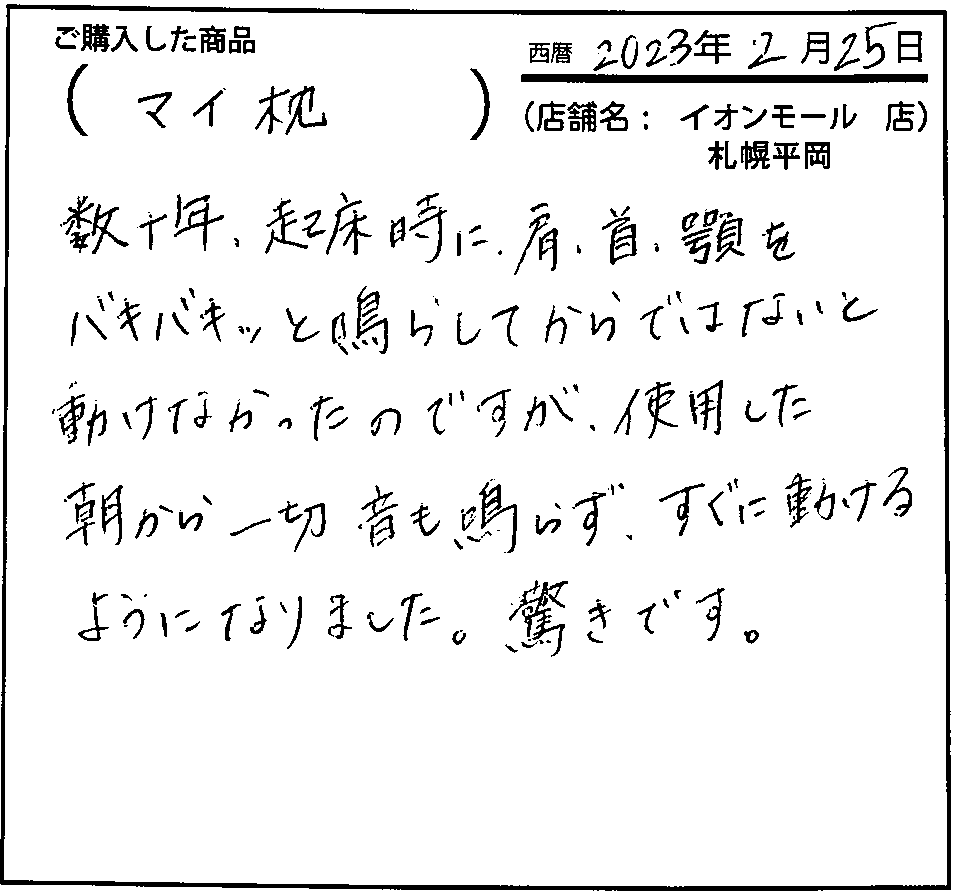 ご購入した商品
西暦 2023年 2月25日
(マイ枕)
(店舗名： イオンモール 店)
札幌平岡
数十年、起床時に、肩、首、顎を
バキバキッと鳴らしてからではないと
動けなかったのですが、使用した
朝から一切音も鳴らず、すぐに動ける
ようになりました。驚きです。